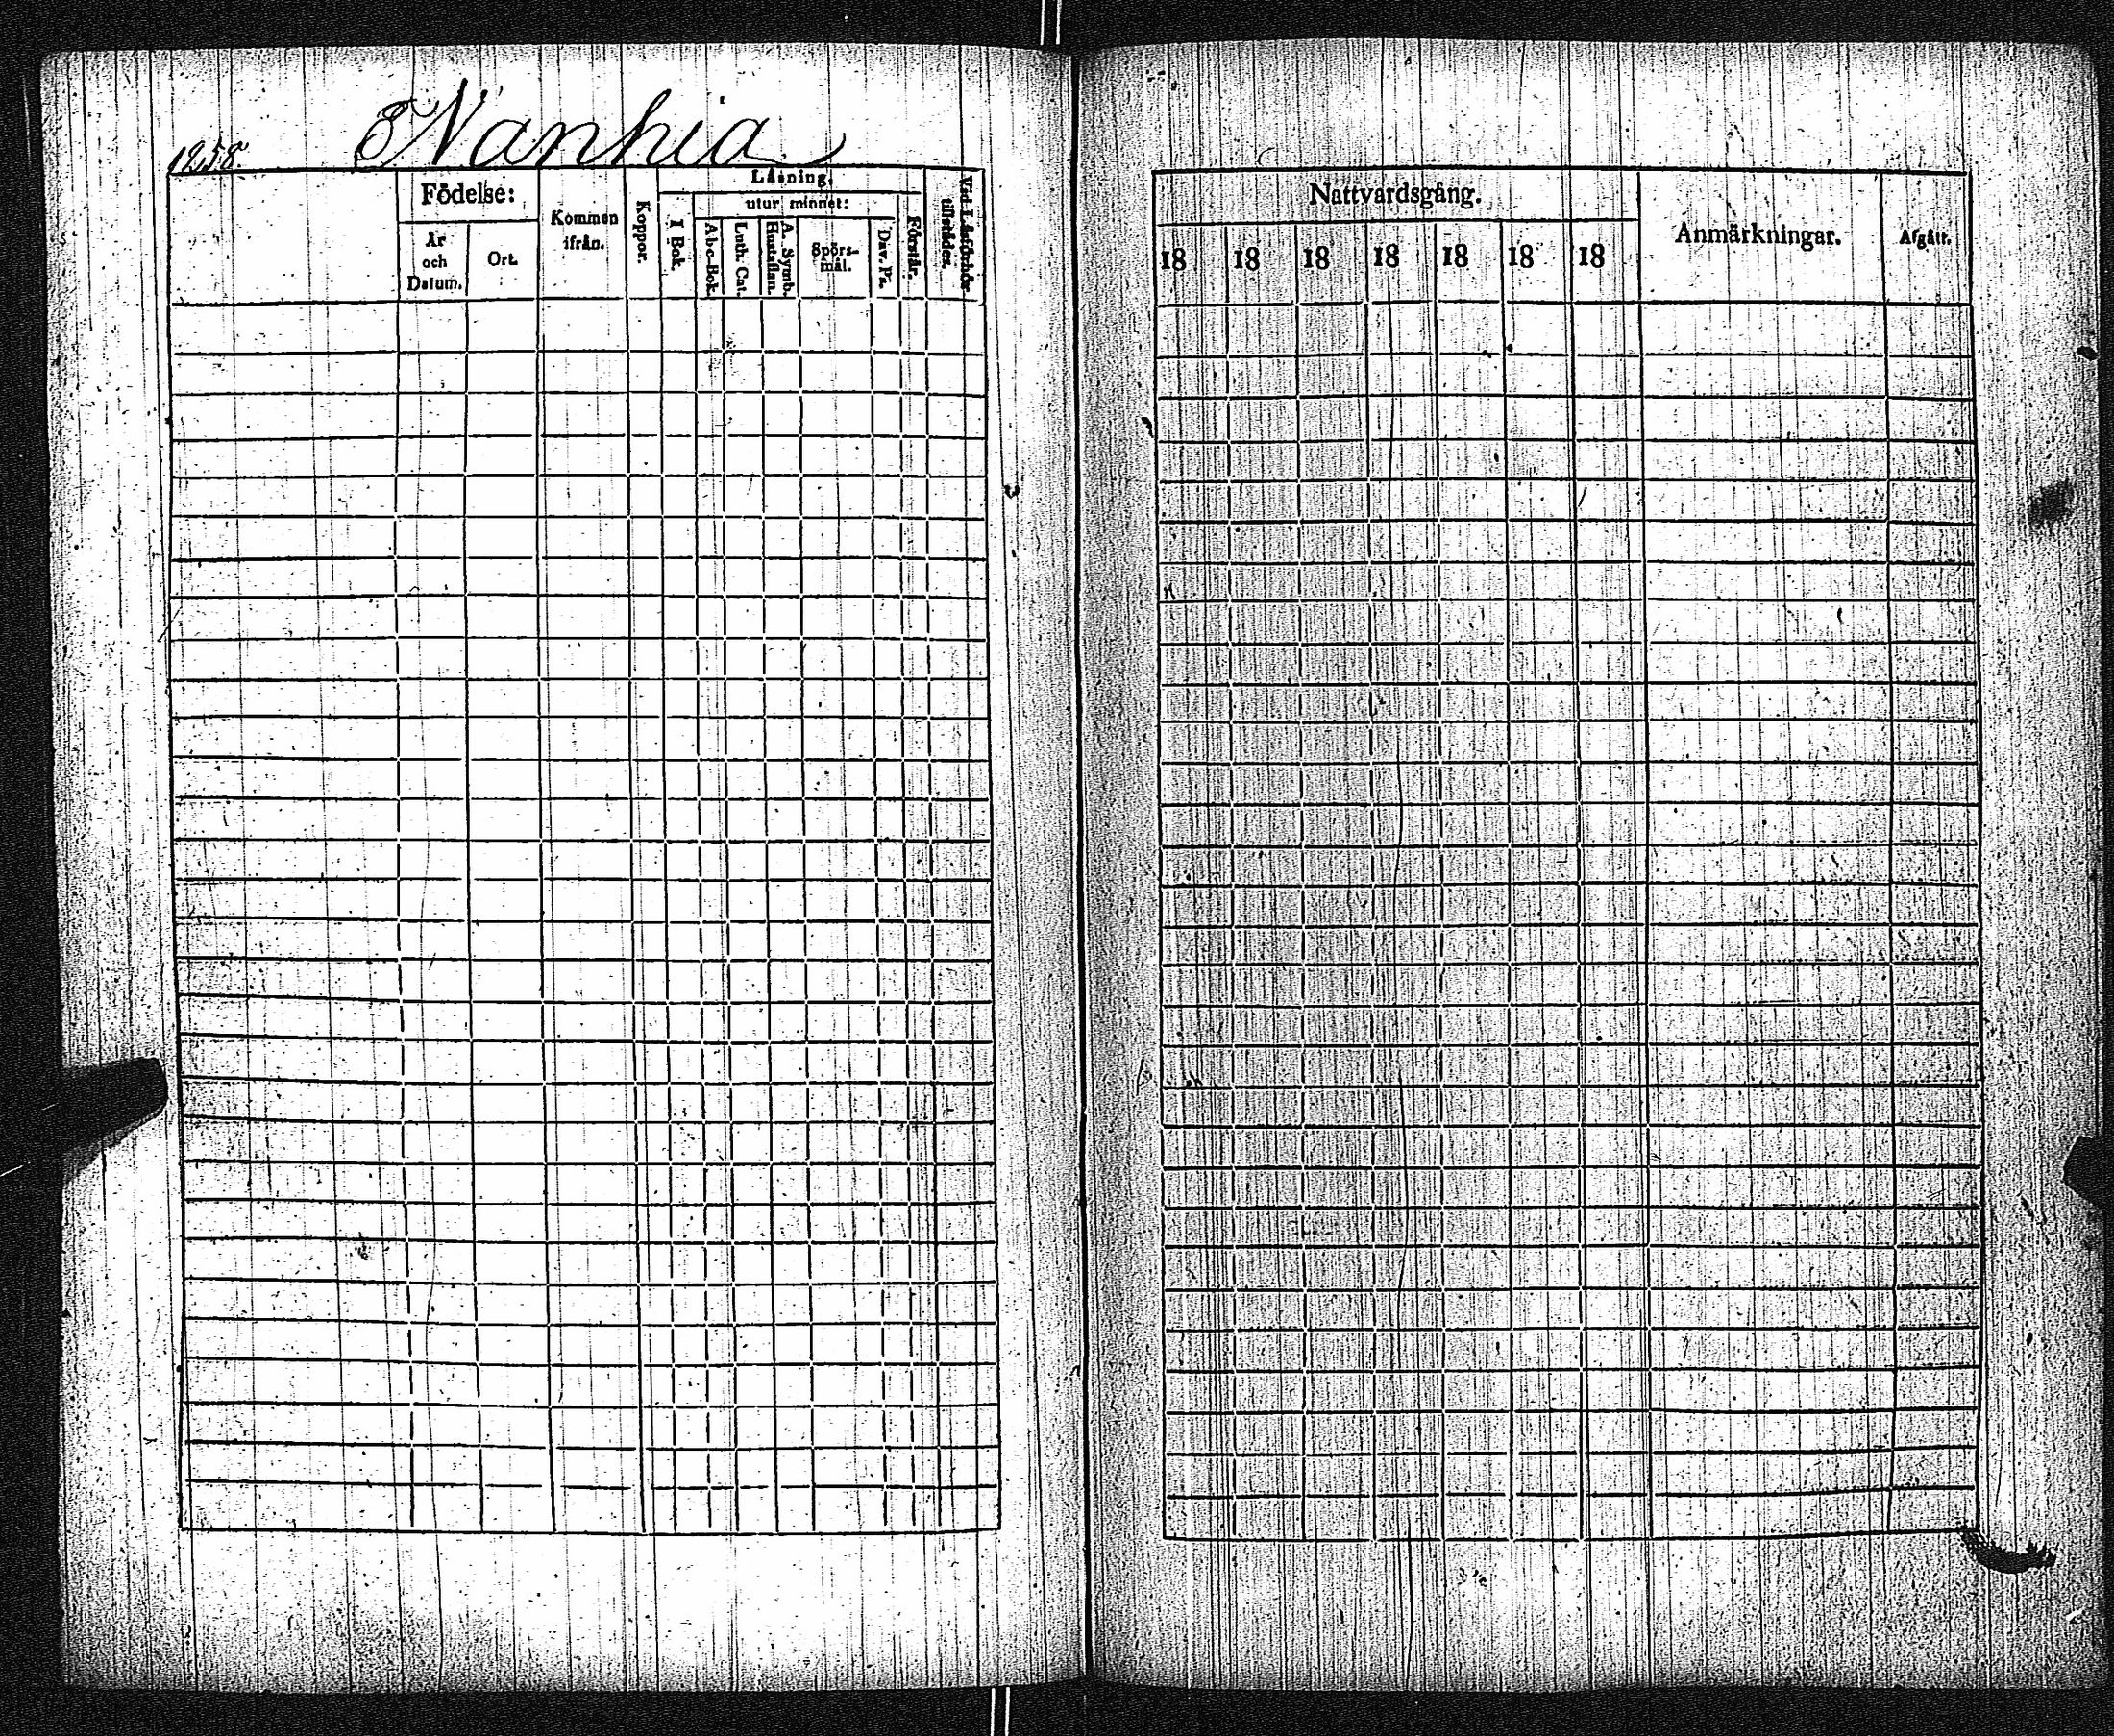 1258.
Nanhia
Födelse:
År
och
Datum.
Ort.
Kommen
ifrån.
Koppor.
Läsning.
I Bok.
utur minnet:
Abc-Bok.
Luth. Cat.
A. Symb.
Hustaflan.
Spörs-
mål.
Dav. Ps.
Förstår.
Vid Läsförhör
tillstädes.
Nattvardsgång.
18 18 18 18 18 18 18
Anmärkningar.
Afgått.